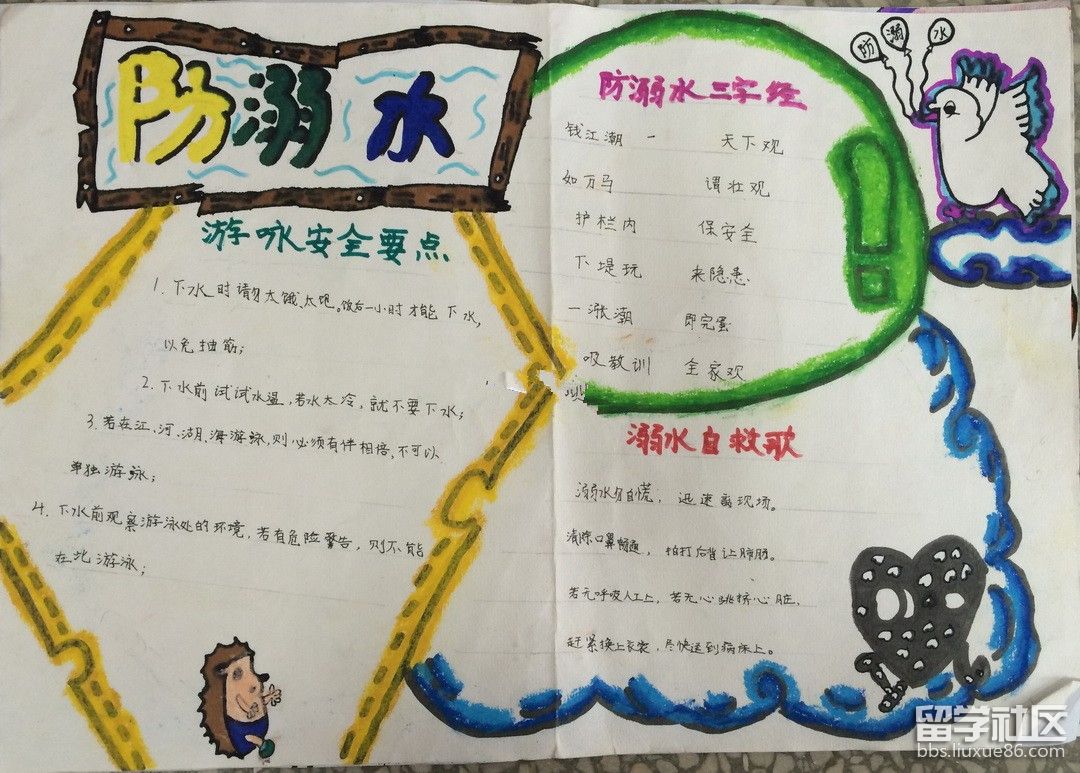 防溺水
游咏安全要点
1. 下水时请勿太饿、太饱。饭后一小时才能下水,
以免抽筋;
2. 下水前试试水温,若水太冷,就不要下水;
3. 若在江、河、湖、海游泳,则必须有伴相陪,不可以
单独游泳;
4. 下水前观察游泳处的环境,若有危险警告,则不能
在此游泳;
防溺水三字经
钱江潮 一 天下观
如万马 谓壮观
护栏内 保安全
下堤玩 来隐患
一涨潮 即完蛋
吸教训 全家欢
防溺水
溺水自救歌
溺水勿自慌, 迅速离现场。
清除口鼻畅通, 拍打后背让肺
若无呼吸人工上, 若无心跳挤心脏、
赶紧换上衣裳, 尽快送到病床上。
留学社区
bbs.liuxue86.com